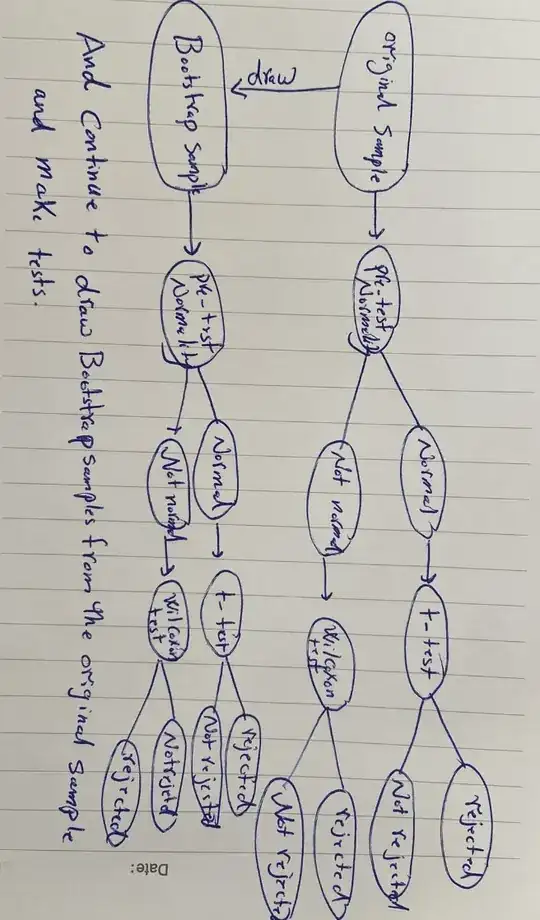 original Sample
pre-test
Normality
Normal
t-test
rejected
Not rejected
Not normal
Wilcoxon
test
rejected
Not rejected
draw
Bootstrap Sample
pre-test
Normality
Normal
t-test
rejected
Not rejected
Not normal
Wilcoxon
test
Not rejected
rejected
And Continue to draw Bootstrap samples from the original sample
and make tests.
Date: